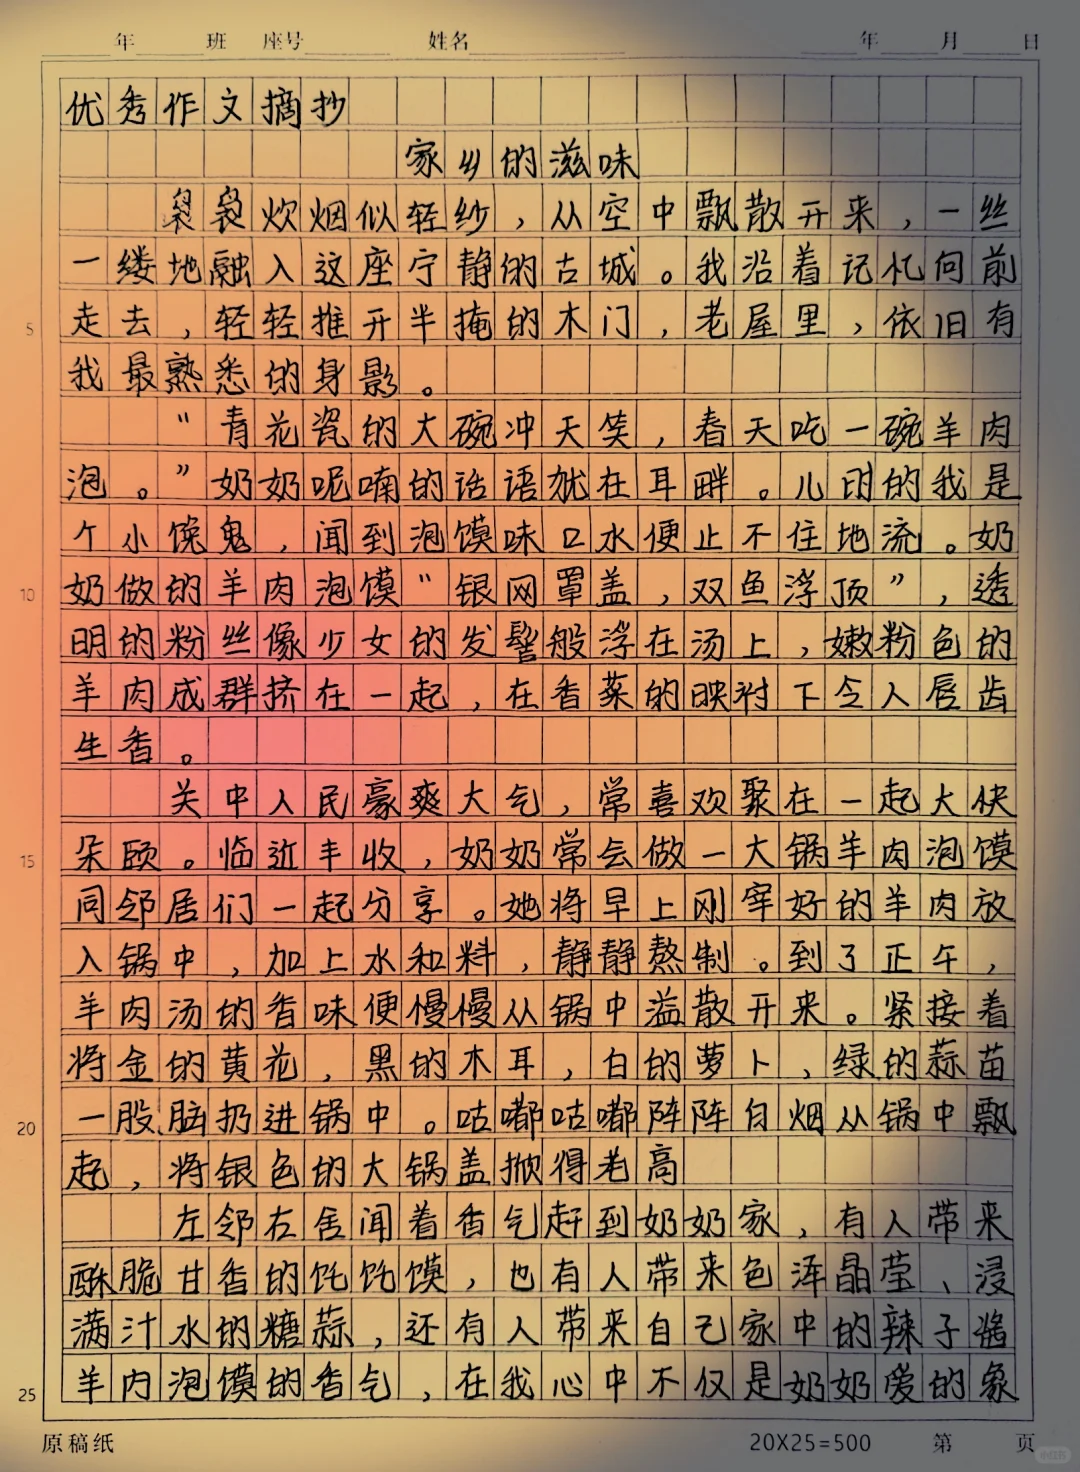 年 班 座号 姓名 年 月 日
优秀作文摘抄
家乡的滋味
袅袅炊烟似轻纱，从空中飘散开来，一丝
一缕地融入这座宁静的古城。我沿着记忆向前
5 走去，轻轻推开半掩的木门，老屋里，依旧有
我最熟悉的身影。
“青花瓷的大碗冲天笑，春天吃一碗羊肉
泡。”奶奶呢喃的话语犹在耳畔。儿时的我是
个小馋鬼，闻到泡馍味口水便止不住地流。奶
10 奶做的羊肉泡馍“银网罩盖，双鱼浮顶”，透
明的粉丝像少女的发髻般浮在汤上，嫩粉色的
羊肉成群挤在一起，在香菜的映衬下令人唇齿
生香。
关中人民豪爽大气，常喜欢聚在一起大快
15 朵颐。临近丰收，奶奶常会做一大锅羊肉泡馍
同邻居们一起分享。她将早上刚宰好的羊肉放
入锅中，加上水和料，静静熬制。到了正午，
羊肉汤的香味便慢慢从锅中溢散开来。紧接着
将金的黄花，黑的木耳，白的萝卜，绿的蒜苗
20 一股脑扔进锅中。咕嘟咕嘟阵阵白烟从锅中飘
起，将银色的大锅盖掀得老高
左邻右舍闻着香气赶到奶奶家，有人带来
酥脆甘香的饦饦馍，也有人带来色泽晶莹、浸
满汁水的糖蒜，还有人带来自己家中的辣子酱
25 羊肉泡馍的香气，在我心中不仅是奶奶爱的象
原稿纸 20X25=500 第 页
小红书